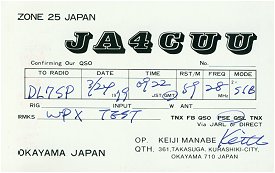 ZONE 25 JAPAN
JA4CUU
Confirming Our QSO
TO RADIO DATE TIME RST/M MHz MODE
DL7SP 3/24 '79 0922 59 28 SSB
JST/GMT
RIG INPUT W ANT
RMKS WPX TEST TNX FB QSO PSE QSL TNX
Via JARL or DIRECT
OP. KEIJI MANABE
QTH. 361, TAKASUGA, KURASHIKI-CITY,
OKAYAMA JAPAN OKAYAMA 710 JAPAN